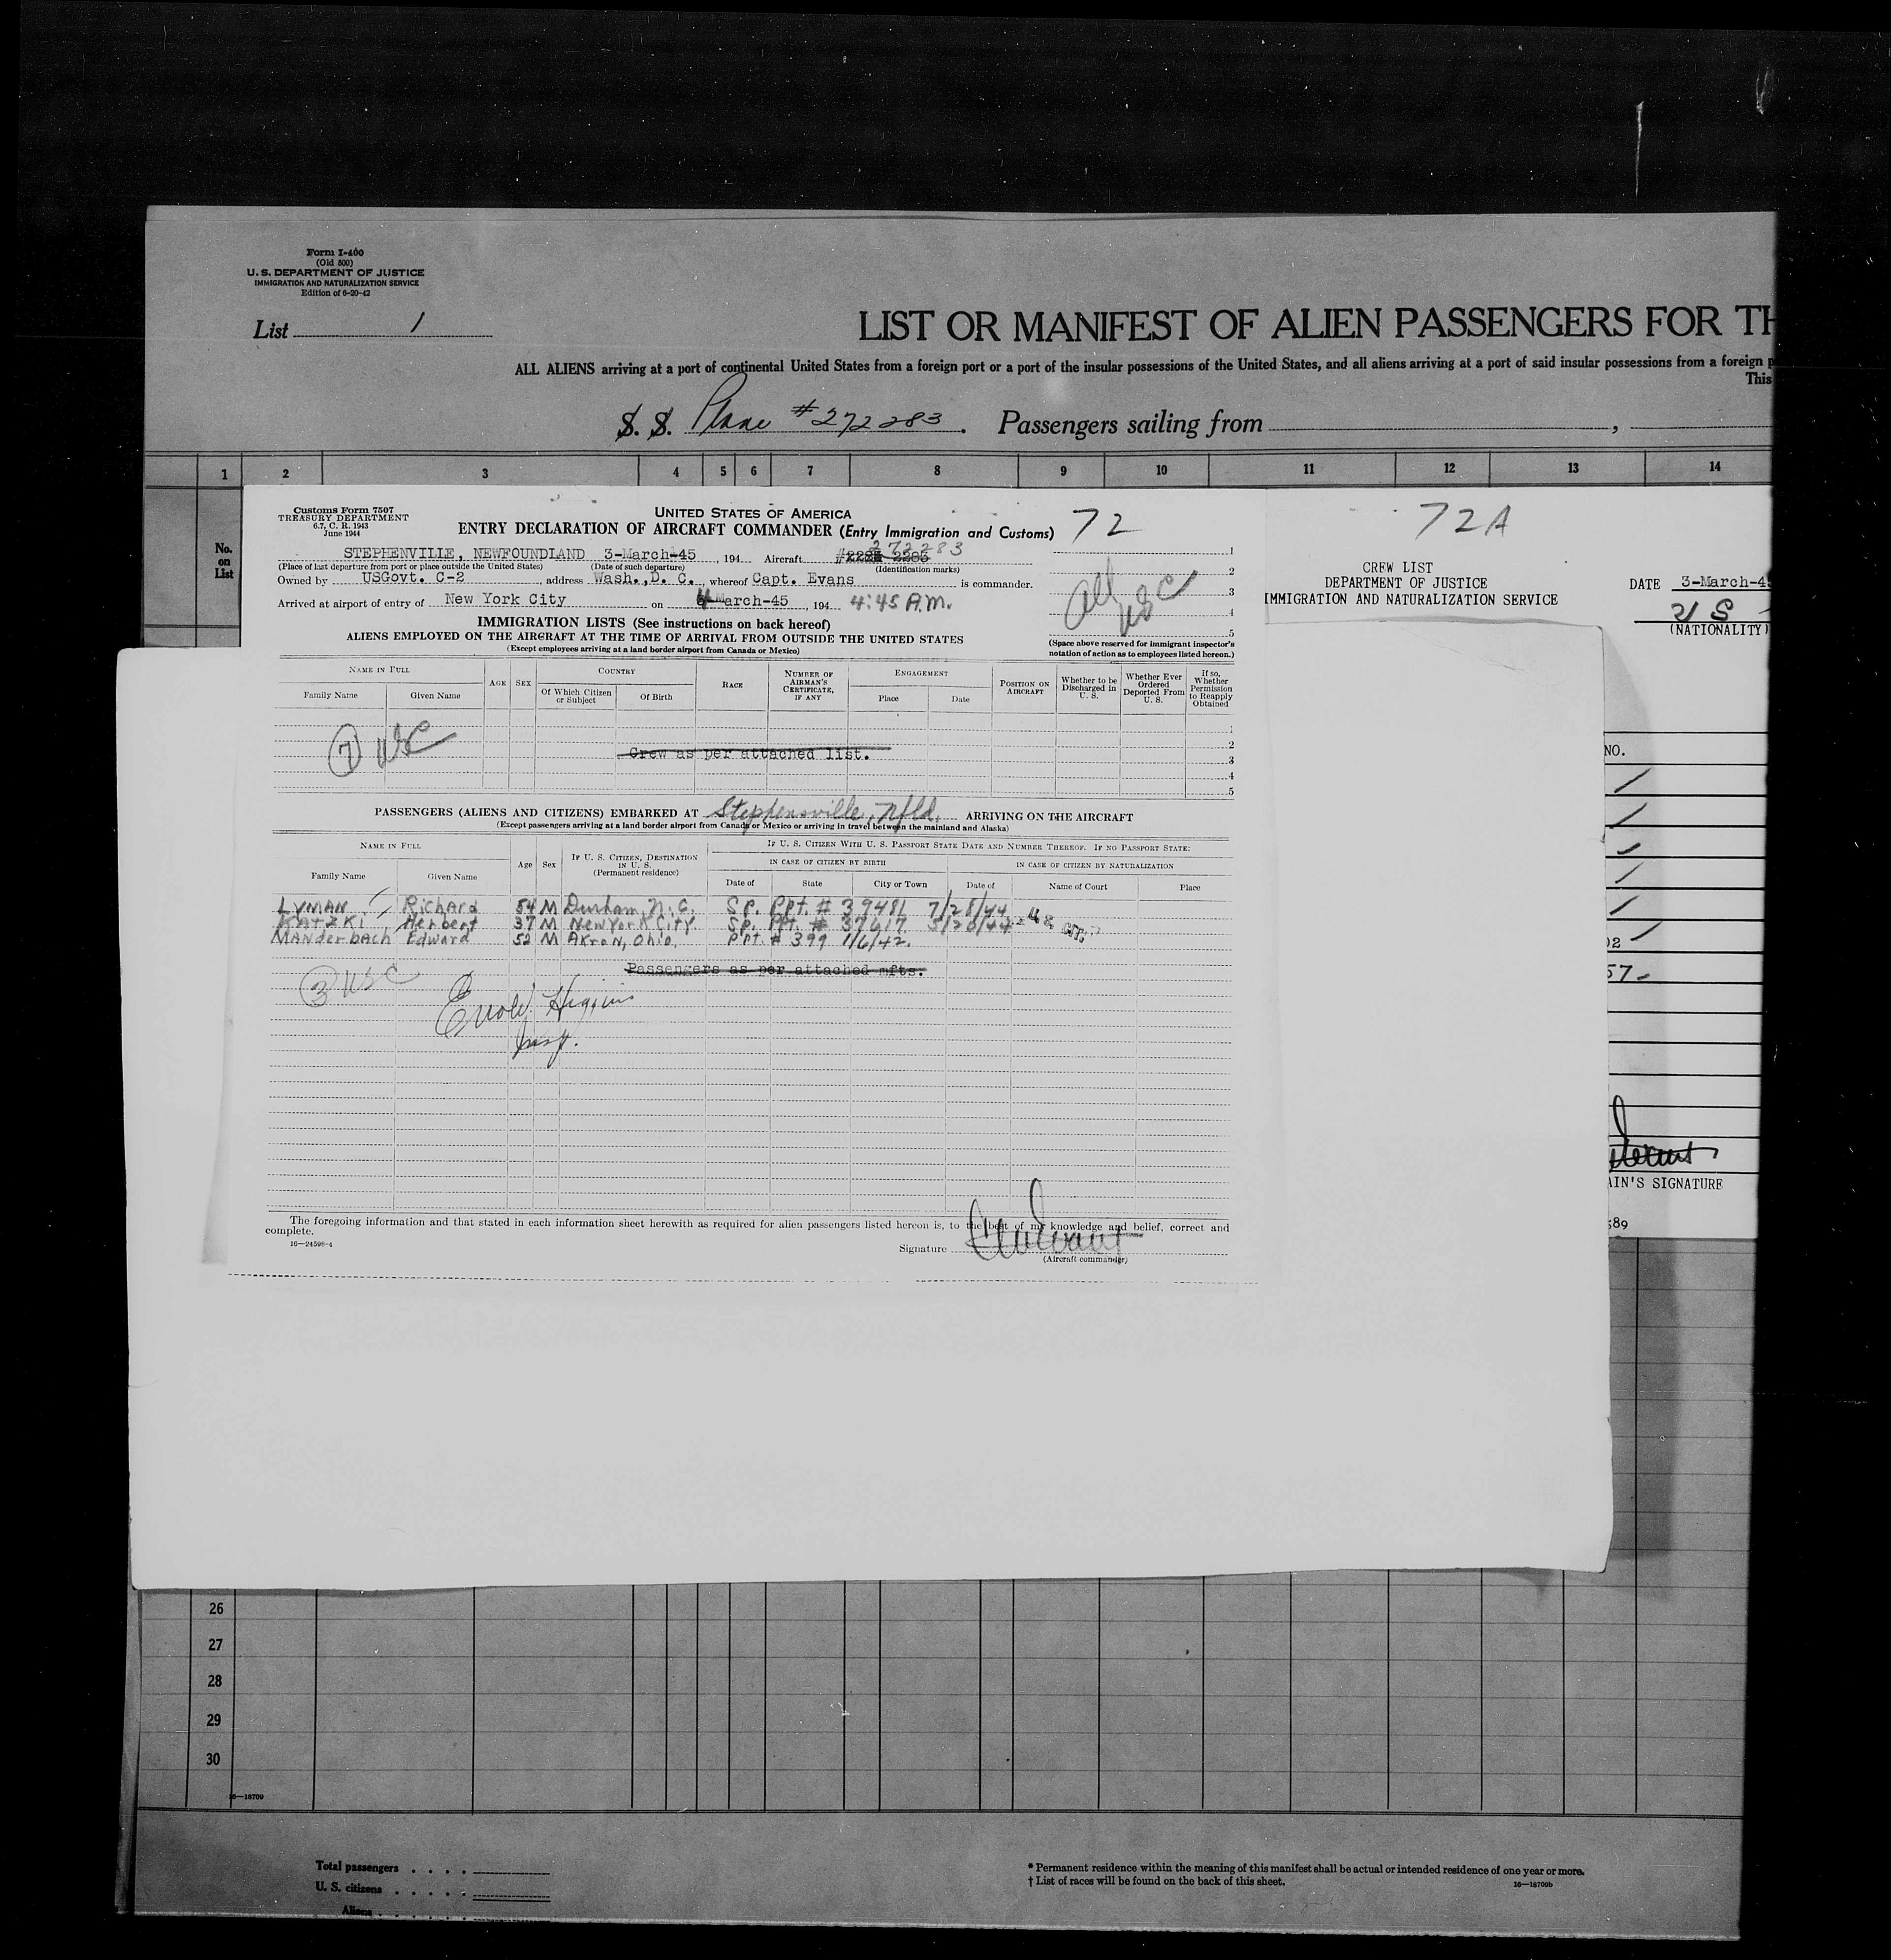 Form I-400
(Old 500)
U. S. DEPARTMENT OF JUSTICE
IMMIGRATION AND NATURALIZATION SERVICE
Edition of 6-20-42
List 1
LIST OR MANIFEST OF ALIEN PASSENGERS FOR TH
ALL ALIENS arriving at a port of continental United States from a foreign port or a port of the insular possessions of the United States, and all aliens arriving at a port of said insular possessions from a foreign p
This
S. S. Plane #272283. Passengers sailing from ,
1 2 3 4 5 6 7 8 9 10 11 12 13 14
No. on List
Customs Form 7507
TREASURY DEPARTMENT
6.7, C. R. 1943
June 1944
UNITED STATES OF AMERICA
ENTRY DECLARATION OF AIRCRAFT COMMANDER (Entry Immigration and Customs)
72
STEPHENVILLE, NEWFOUNDLAND 3-March-45, 194 Aircraft #272283
(Place of last departure from port or place outside the United States) (Date of such departure) (Identification marks)
Owned by USGovt. C-2, address Wash.,D. C., whereof Capt. Evans is commander.
Arrived at airport of entry of New York City on 4 March-45, 194 4:45 A.M.
1
2
3
4
5
All USC
IMMIGRATION LISTS (See instructions on back hereof)
ALIENS EMPLOYED ON THE AIRCRAFT AT THE TIME OF ARRIVAL FROM OUTSIDE THE UNITED STATES
(Except employees arriving at a land border airport from Canada or Mexico)
(Space above reserved for immigrant inspector's
notation of action as to employees listed hereon.)
NAME IN FULL AGE SEX COUNTRY RACE NUMBER OF AIRMAN'S CERTIFICATE, IF ANY ENGAGEMENT POSITION ON AIRCRAFT Whether to be Discharged in U. S. Whether Ever Ordered Deported From U. S. If so, Whether Permission to Reapply Obtained
Family Name Given Name Of Which Citizen or Subject Of Birth Place Date
7 USC
Crew as per attached list.
1
2
3
4
5
PASSENGERS (ALIENS AND CITIZENS) EMBARKED AT Stephensville, Nfld. ARRIVING ON THE AIRCRAFT
(Except passengers arriving at a land border airport from Canada or Mexico or arriving in travel between the mainland and Alaska)
NAME IN FULL Age Sex IF U. S. CITIZEN, DESTINATION IN U. S. (Permanent residence) IF U. S. CITIZEN WITH U. S. PASSPORT STATE DATE AND NUMBER THEREOF. IF NO PASSPORT STATE:
IN CASE OF CITIZEN BY BIRTH IN CASE OF CITIZEN BY NATURALIZATION
Family Name Given Name Date of State City or Town Date of Name of Court Place
LYMAN Richard 54 M Durham, N. C. Sp. Ppt. # 39481 7/28/44
KATZKI Herbert 37 M New York City. Sp. Ppt. # 37617 5/20/44
Manderbach Edward 52 M Akron, Ohio. Ppt. # 399 1/6/42.
Passengers as per attached mfts.
3 USC
Errold Higgins
Insp.
The foregoing information and that stated in each information sheet herewith as required for alien passengers listed hereon is, to the best of my knowledge and belief, correct and
complete.
16—24598-4
Signature
(Aircraft commander)
72A
CREW LIST
DEPARTMENT OF JUSTICE
IMMIGRATION AND NATURALIZATION SERVICE
DATE 3-March-45
U S
(NATIONALITY)
NO.
02
57
AIN'S SIGNATURE
589
26
27
28
29
30
16—18709
Total passengers
U. S. citizens
Aliens
* Permanent residence within the meaning of this manifest shall be actual or intended residence of one year or more.
† List of races will be found on the back of this sheet.
16—18709b